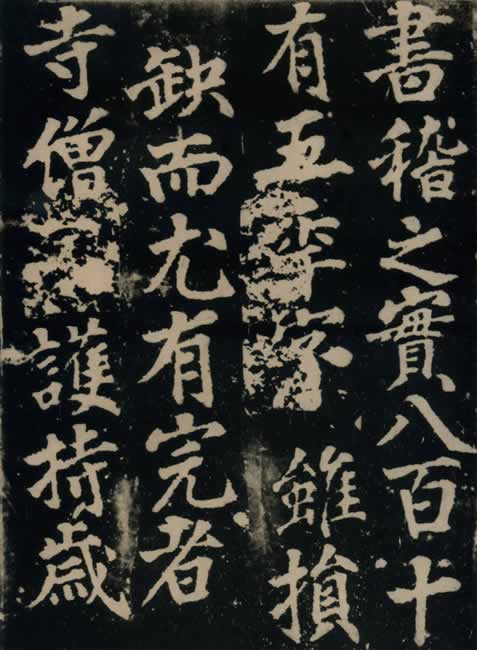 書稽之實八百十
有五雖損
缺而尤有完者
寺僧護持歲